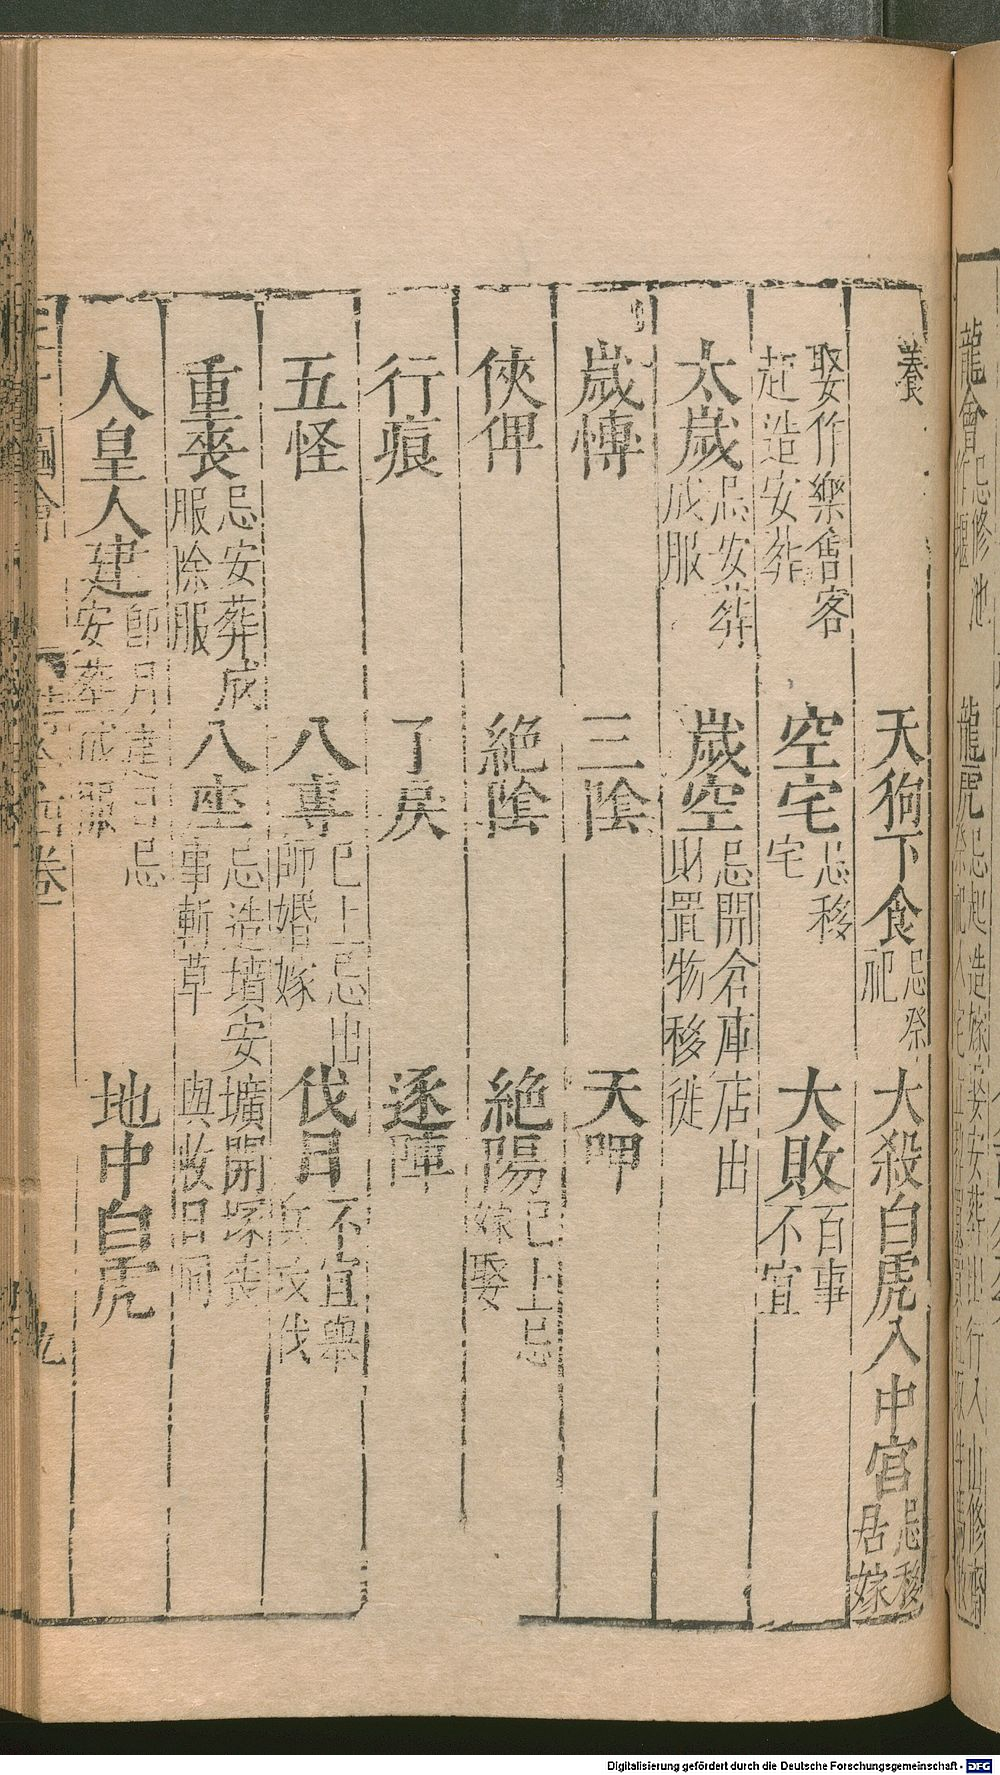 養 天狗下食 忌祭祀 大殺白虎入中宮 忌移居嫁
娶作樂會客起造安葬 空宅 忌移宅 大敗 百事不宜
太歲 忌安葬成服 歲空 忌開倉庫店出財置物移徙
歲愽 三陰 天呷
俠俾 絶陰 絶陽 已上忌嫁娶
行痕 了戾 逐陣
五怪 八專 已上忌出師婚嫁 伐日 不宜舉兵攻伐
重喪 忌安葬成服除服 八座 忌造墳安壙開塚喪事斬草與收日同
人皇人建 卽月建日忌安葬成服 地中白虎
圖會 卷 九
Digitalisierung gefördert durch die Deutsche Forschungsgemeinschaft - DFG